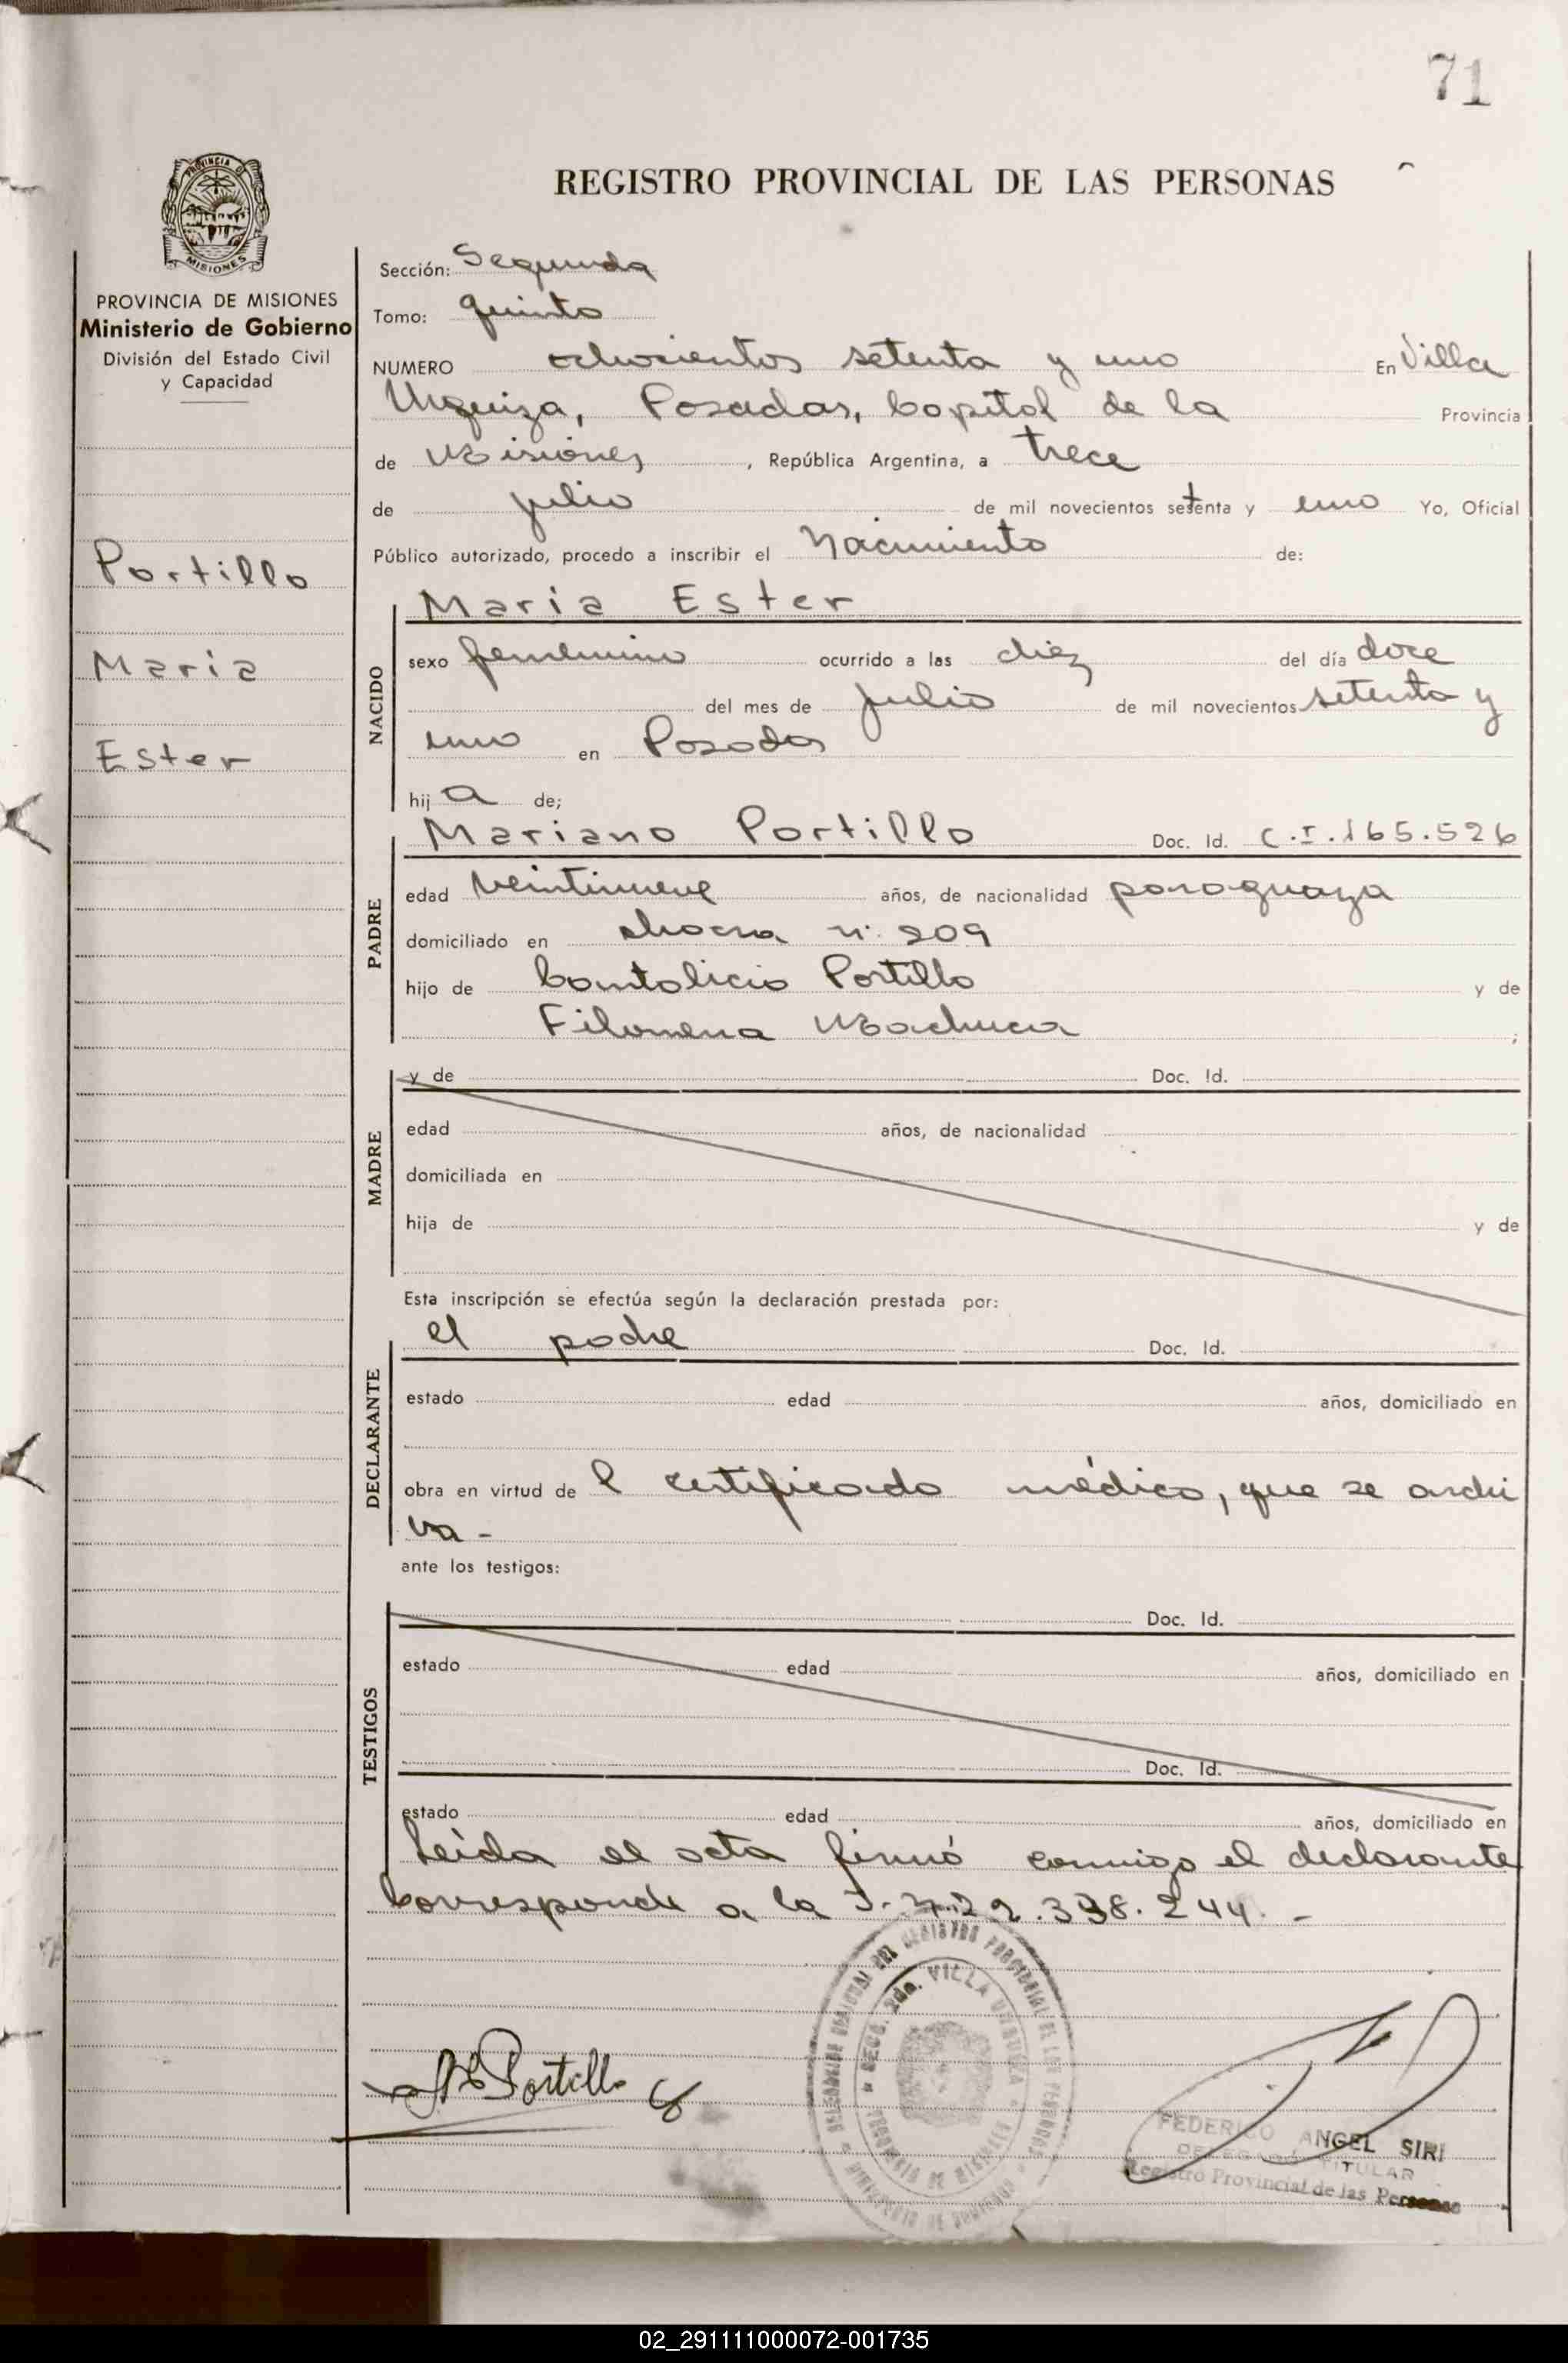 71
PROVINCIA DE
MISIONES
REGISTRO PROVINCIAL DE LAS PERSONAS
PROVINCIA DE MISIONES
Ministerio de Gobierno
División del Estado Civil
y Capacidad
Portillo
María
Ester
Sección: Segunda
Tomo: quinto
NUMERO ochocientos setenta y uno En Villa
Urquiza, Posadas, Capital de la Provincia
de Misiones, República Argentina, a trece
de julio de mil novecientos setenta y uno Yo, Oficial
Público autorizado, procedo a inscribir el Nacimiento de:
NACIDO
María Ester
sexo femenino ocurrido a las diez del día doce
del mes de julio de mil novecientos setenta y
uno en Posadas
hij a de;
PADRE
Mariano Portillo Doc. Id. C.I. 165.526
edad veintinueve años, de nacionalidad paraguaya
domiciliado en chacra n: 209
hijo de Cantalicio Portillo y de
Filomena Machuca ;
MADRE
y de Doc. Id.
edad años, de nacionalidad
domiciliada en
hija de y de
Esta inscripción se efectúa según la declaración prestada por:
DECLARANTE
el padre Doc. Id.
estado edad años, domiciliado en
obra en virtud de l certificado médico, que se archi
va -
ante los testigos:
TESTIGOS
Doc. Id.
estado edad años, domiciliado en
Doc. Id.
estado edad años, domiciliado en
Leída el acta firmó conmigo el declarante
Corresponde a la 22.338.244. -
Portillo
SECC. 2da. VILLA URQUIZA
FEDERICO ANGEL SIRI
DELEGADO TITULAR
Registro Provincial de las Personas
02_291111000072-001735